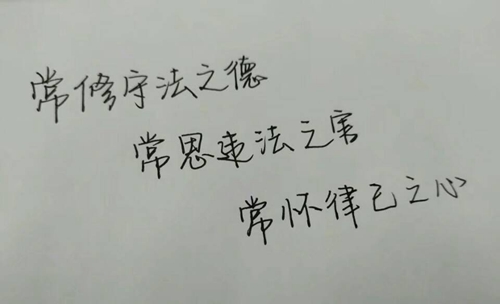 常修守法之德
常思违法之害
常怀律己之心